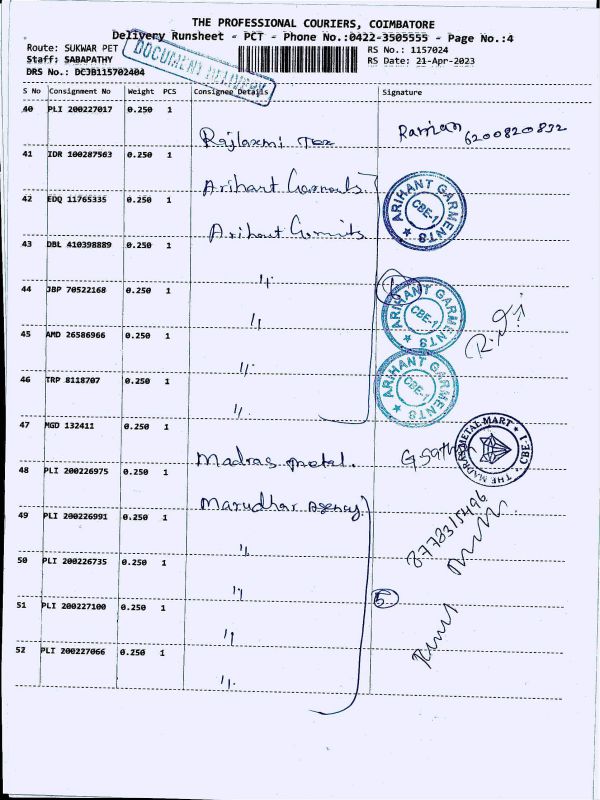 THE PROFESSIONAL COURIERS, COIMBATORE
Delivery Runsheet - PCT - Phone No.:0422-3505555 - Page No.:4
Route: SUKWAR PET
RS No.: 1157024
Staff: SABAPATHY
RS Date: 21-Apr-2023
DRS No.: DCJB115702404
DOCUMENT DELIVERY
S No Consignment No Weight PCS Consignee Details Signature
40 PLI 200227017 0.250 1
Rajlaxmi Tex
Raman 6200820832
41 IDR 100287563 0.250 1
Arihant
42 EDQ 11765335 0.250 1
Arihant
ARIHANT GARMENTS
CBE-1
43 DBL 410398889 0.250 1
"
44 JBP 70522168 0.250 1
"
ARIHANT GARMENTS
CBE-1
45 AMD 26586966 0.250 1
"
46 TRP 8118707 0.250 1
"
ARIHANT GARMENTS
CBE-1
47 MGD 132411 0.250 1
Madras metal.
THE MADRAS METAL MART
CBE-1
48 PLI 200226975 0.250 1
Marudhar Agency
49 PLI 200226991 0.250 1
"
8778315496
50 PLI 200226735 0.250 1
"
5
51 PLI 200227100 0.250 1
"
52 PLI 200227066 0.250 1
"